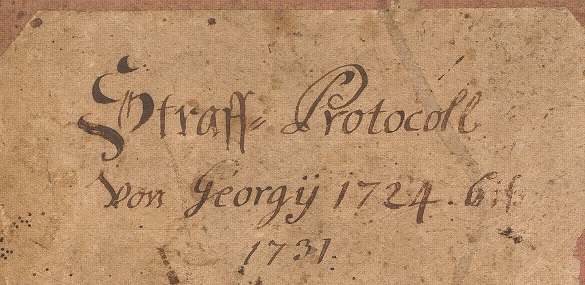 Straff= Protocoll
von Georgÿ 1724. biß
1731.